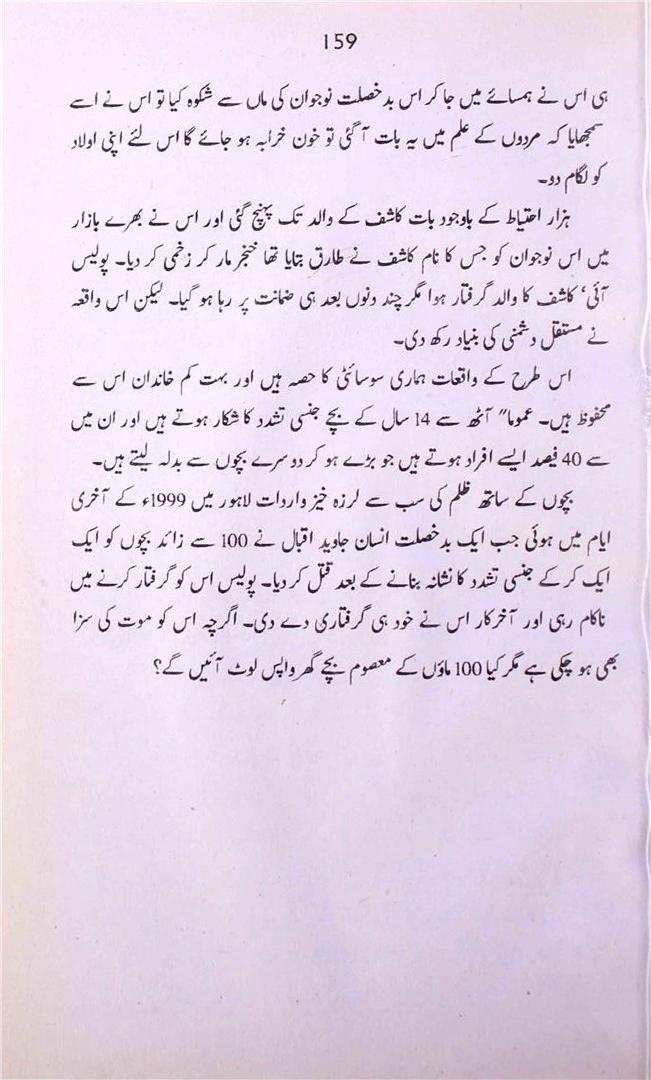 159
ہی اس نے ہمسائے میں جا کر اس بد خصلت نوجوان کی ماں سے شکوہ کیا تو اس نے اسے
سمجھایا کہ مردوں کے علم میں یہ بات آ گئی تو خون خرابہ ہو جائے گا اس لئے اپنی اولاد
کو لگام دو۔
ہزار احتیاط کے باوجود بات کاشف کے والد تک پہنچ گئی اور اس نے بھرے بازار
میں اس نوجوان کو جس کا نام کاشف نے طارق بتایا تھا خنجر مار کر زخمی کر دیا۔ پولیس
آئی‘ کاشف کا والد گرفتار ہوا مگر چند دنوں بعد ہی ضمانت پر رہا ہو گیا۔ لیکن اس واقعہ
نے مستقل دشمنی کی بنیاد رکھ دی۔
اس طرح کے واقعات ہماری سوسائٹی کا حصہ ہیں اور بہت کم خاندان اس سے
محفوظ ہیں۔ عموما" آٹھ سے 14 سال کے بچے جنسی تشدد کا شکار ہوتے ہیں اور ان میں
سے 40 فیصد ایسے افراد ہوتے ہیں جو بڑے ہو کر دوسرے بچوں سے بدلہ لیتے ہیں۔
بچوں کے ساتھ ظلم کی سب سے لرزہ خیز واردات لاہور میں 1999ء کے آخری
ایام میں ہوئی جب ایک بدخصلت انسان جاوید اقبال نے 100 سے زائد بچوں کو ایک
ایک کر کے جنسی تشدد کا نشانہ بنانے کے بعد قتل کر دیا۔ پولیس اس کو گرفتار کرنے میں
ناکام رہی اور آخرکار اس نے خود ہی گرفتاری دے دی۔ اگرچہ اس کو موت کی سزا
بھی ہو چکی ہے مگر کیا 100 ماؤں کے معصوم بچے گھر واپس لوٹ آئیں گے؟